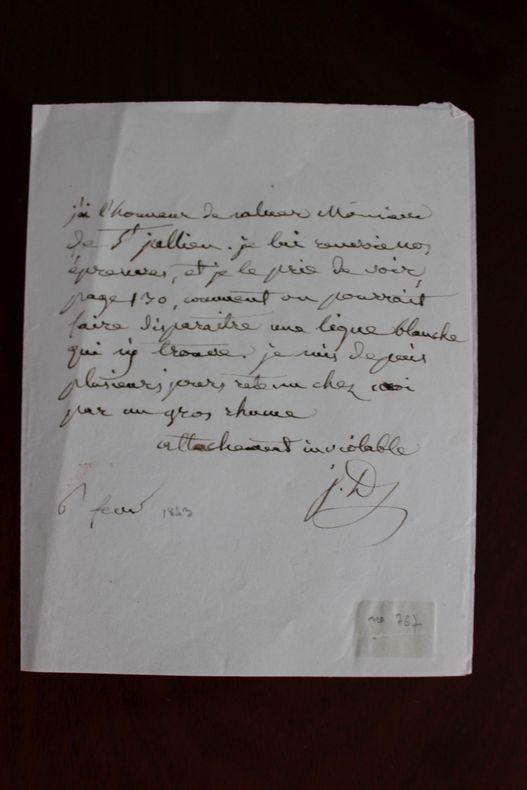 j'ai l'honneur de saluer Monsieur
de St jullien. je lui renvoie nos
épreuves, et je le prie de voir,
page 130, comment on pourrait
faire disparaitre une ligne blanche
qui s'y trouve. je suis depuis
plusieurs jours retenu chez moi
par un gros rhume
attachement inviolable
j. D
6 fevr 1843
762